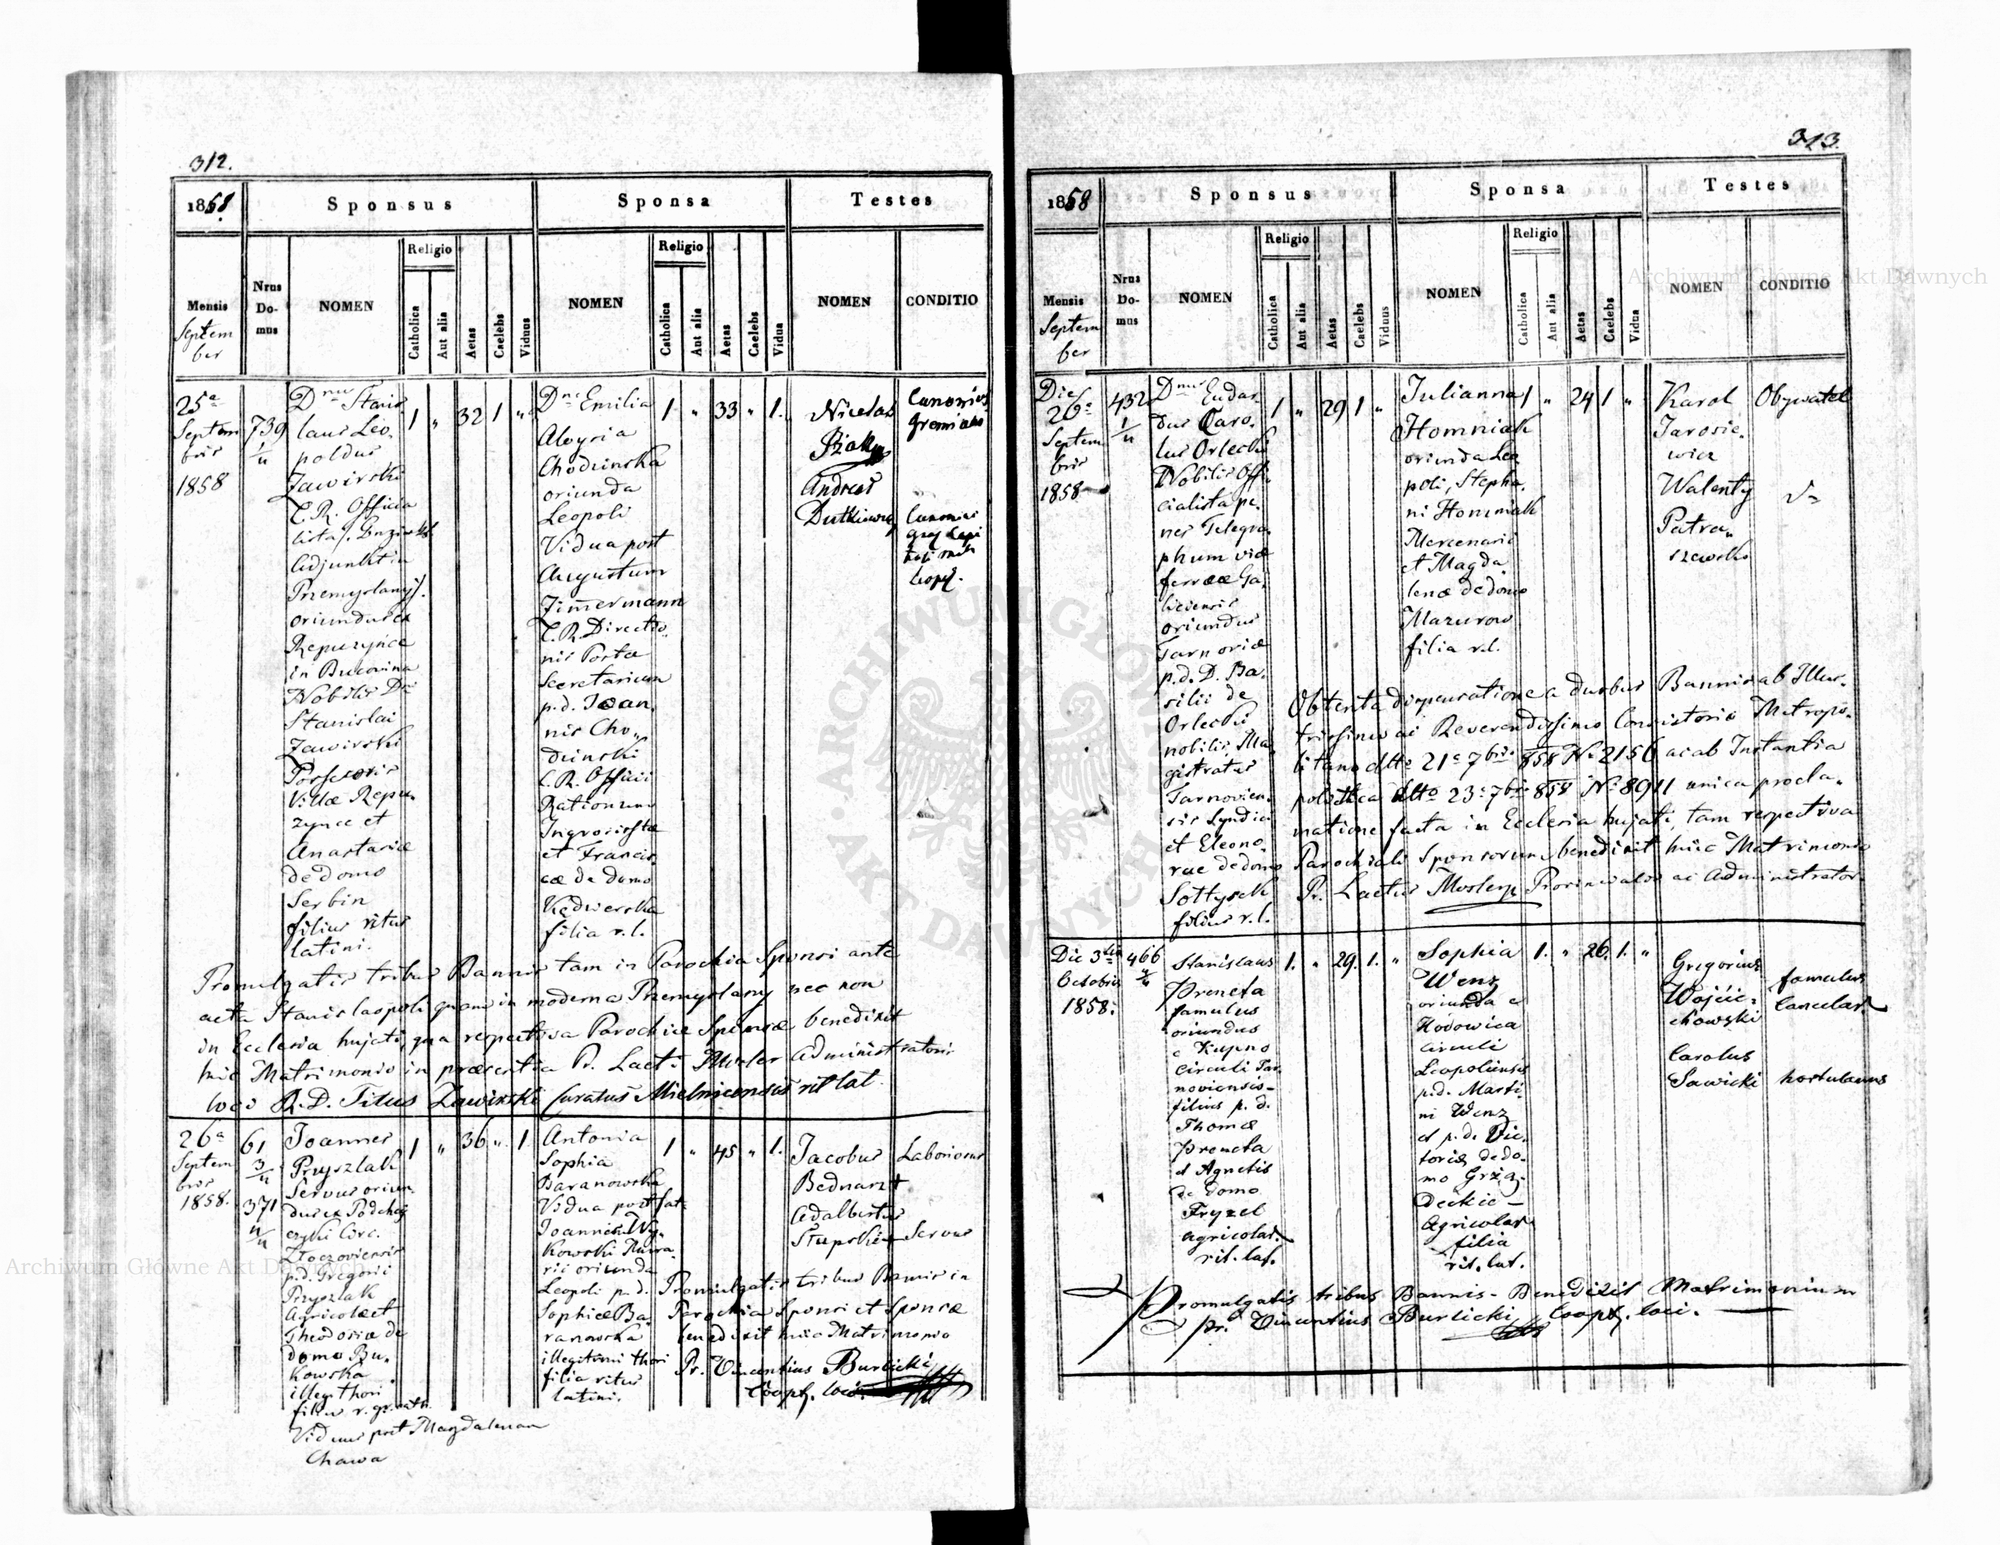 312.
1858.
Sponsus
Sponsa
Testes
Mensis
Septem
ber
Nrus
Do-
mus
NOMEN
Religio
Catholica
Aut alia
Aetas
Caelebs
Viduus
NOMEN
Religio
Catholica
Aut alia
Aetas
Caelebs
Vidua
NOMEN
CONDITIO
25a
Septem
bris
1858
739
1/4
Dnus Stanis
laus Leo-
poldus
Zawirski
C. R. Officia
lista
Adjunkt in
Przemyslany).
oriundus ex
Repuzynce
in Bucovina
Nobilis Dni
Stanislai
Zawirski
Possesoris
Villae Repu-
zynce et
Anastasiae
de domo
Serbin
filius ritus
latini.
1 " 32 1 "
Dna Emilia
Aloysia
Chodzinska
oriunda
Leopoli
Vidua post
Augustum
Zimermann
C. R. Directio
nis Postae
Secretarium
p. d. Joan,
nis Cho,,
dzinski
C. R. Officii
Rationum
et Francis
cae de domo
Kędzierska
filia r. l.
1 " 33 " 1.
Nicolas
Andreas
Dutkiewicz
Canonicus
Gremialis
Promulgatis tribus Bannis tam in Parochia Sponsi ante
acta Stanislaopoli quam in moderna Przemyslany nec non
in Ecclesia hujati, qua respectiva Parochiae Sponsae benedixit
huic Matrimonio in praesentia Pr. Laeti Administratoris
loci R. D. Titus Zawirski Curatus Mielnicensis rit lat.
26a
Septem
bris
1858.
61
3/4
371
4/4
Joannes
Pryszlak
Servus oriun-
dus ex Podhaj
czyki Circ.
Złoczoviensis
p. d. Gregorii
Pryszlak
Agricolae et
Theodosiae de
domo Bu-
kowska
illegi thori
filius r. gr. cath.
Viduus post Magdalenam
Chawa
1 " 36 " 1.
Antonia
Sophia
Baranowska
Vidua post fat:
Joannem Wy-
kowski Mura-
rii oriunda
Leopoli p. d.
Sophiae Ba-
ranowska
illegitimi thori
filia ritus
latini.
1 " 45 " 1.
Jacobus
Bednarz
Adalbertus
Stupski
Laboriosus
Servus
Promulgatis tribus Bannis in
Parochia Sponsi et Sponsae
benedixit huic Matrimonio
Pr. Vincentius Burlicki
Coop. loci.
313.
1858
Sponsus
Sponsa
Testes
Mensis
Septem
ber
Nrus
Do-
mus
NOMEN
Religio
Catholica
Aut alia
Aetas
Caelebs
Viduus
NOMEN
Religio
Catholica
Aut alia
Aetas
Caelebs
Vidua
NOMEN
CONDITIO
Die
26a
Septem
bris
1858
432
1/4
Dnus Eudar
dus Caro-
lus Orlecki
Nobilis Offi-
cialista pe-
nes Telegra-
phum viae
ferreae Ga-
liciensis
oriundus
Tarnoviae
p. d. D. Ba-
silii de
Orlecki
nobilis, Ma
gistratus
Tarnovien-
sis Syndici
et Eleono-
rae de domo
Sołtysek
filius r. l.
1 " 29 1 "
Julianna
Homniak
oriunda Leo
poli, Stepha-
ni Homniak
Mercenarii
et Magda
lenae de domo
Mazurow
filia r. l.
1 " 24 1 "
Karol
Jarosie-
wicz
Walenty
Patra-
szewski
Obywatel
Obtenta dispensatione a duobus Bannis ab Illus-
trissimo ac Reverendissimo Consistorio Metropo-
litano ddto 21a 7bris 858 No 2156 ac ab Instantia
politica ddto 23a 7bris 858 No 8911 unica procla-
matione facta in Ecclesia hujati, tam respectiva
Parochiali Sponsorum benedixit huic Matrimonio
Pr. Laetus Provincialis ac Administrator
Die 3tia
Octobris
1858.
466
4/4
Stanislaus
Preneta
famulus
oriundus
e Kupno
Circuli Tar
noviensis
filius p. d.
Thomae
Preneta
et Agnetis
de domo
Fryzel
agricolar.
rit. lat.
1. " 29. 1. "
Sophia
Wenz
oriunda e
Hodowica
circuli
Leopoliensis
p. d. Marti-
ni Wenz
et p. d. Vic-
toriae de do-
mo Grzą-
decki
agricolar.
filia
rit. lat.
1. " 26. 1. "
Gregorius
Wojcie-
chowski
Carolus
Sawicki
famulus
Cancelar.
hortulanus
Promulgatis tribus Bannis - Benedixit Matrimonium
Pr. Vincentius Burlicki Coop. loci.
Archiwum Główne Akt Dawnych
Archiwum Główne Akt Dawnych
ARCHIWUM GŁÓWNE · AKT DAWNYCH ·